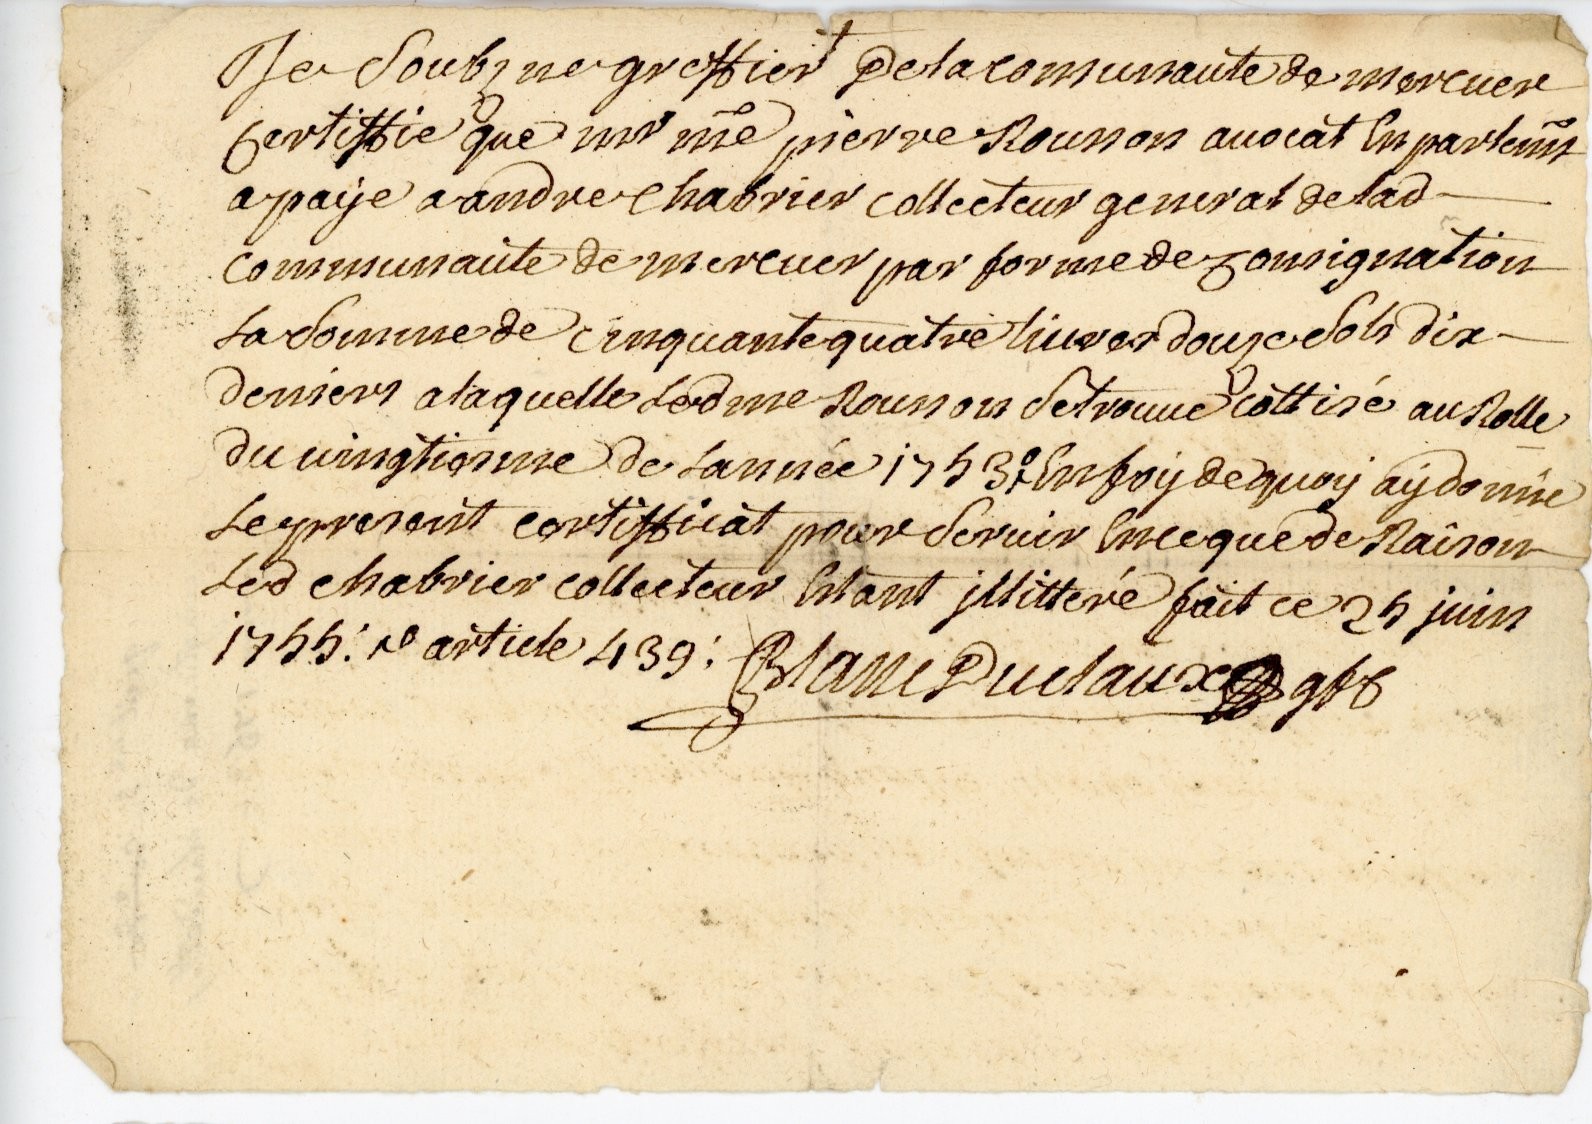 Je soubzne greffier de la communauté de mercuer
Certiffie que mr me pierre Rousson avocat En parlemt
a paÿé a andre Chabrier collecteur general de lad
communauté de mercuer par forme de Consignation
La somme de Cinquante quatre liures douze sols dix
deniers a laquelle Led me Rousson se trouue cottisé au Rolle
du uingtieme de Lannée 1753: En foÿ de quoÿ aÿ donné
Le present certifficat pour seruir En ce que de Raison
Led chabrier collecteur Estant jllitteré fait ce 25 juin
1755: no article 439: Blanc Duclaux gff